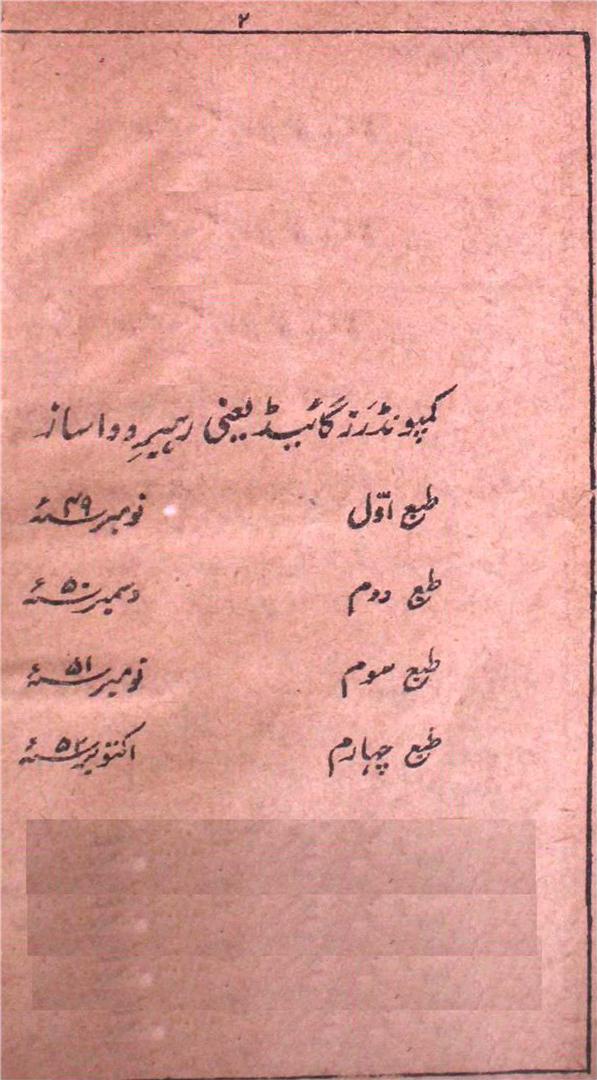 ۲
کمپونڈرَز گائیڈ یعنی رہبرِ دوا ساز
طبع اوّل نومبر ۴۹ء
طبع دوم دسمبر ۵۰ء
طبع سوم نومبر ۵۱ء
طبع چہارم اکتوبر ۵۲ء